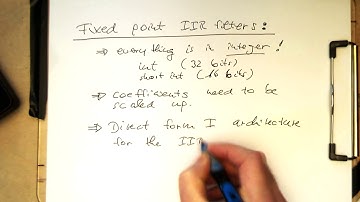 Fixed point IIR filters:
⇒ everything is in integer!
int (32 bits)
short int (16 bits)
⇒ coefficients need to be
scaled up.
⇒ Direct form I architecture
for the II